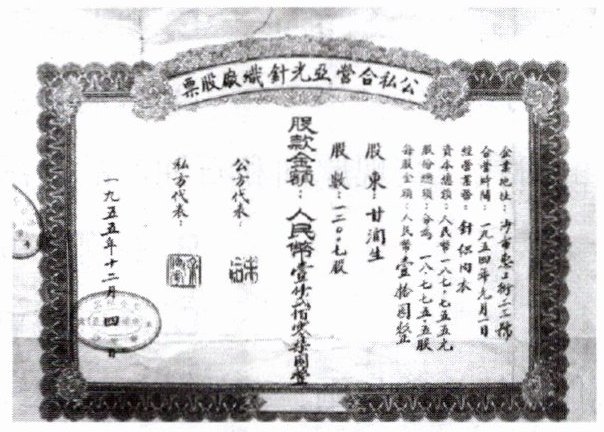 公私合營亞光針織廠股票
企業地址：沙市惠工街二三號
合營時間：一九五四年九月一日
經營業務：針织内衣
資本總額：人民幣一八七、七五五元
股份總額：分為一八、七七五·五股
每股金額：人民幣壹拾圓整
股東：甘潤生
股數：一二〇·七股
股款金額：人民幣壹仟贰佰零柒圓整
公方代表：
私方代表：
一九五五年十二月四日